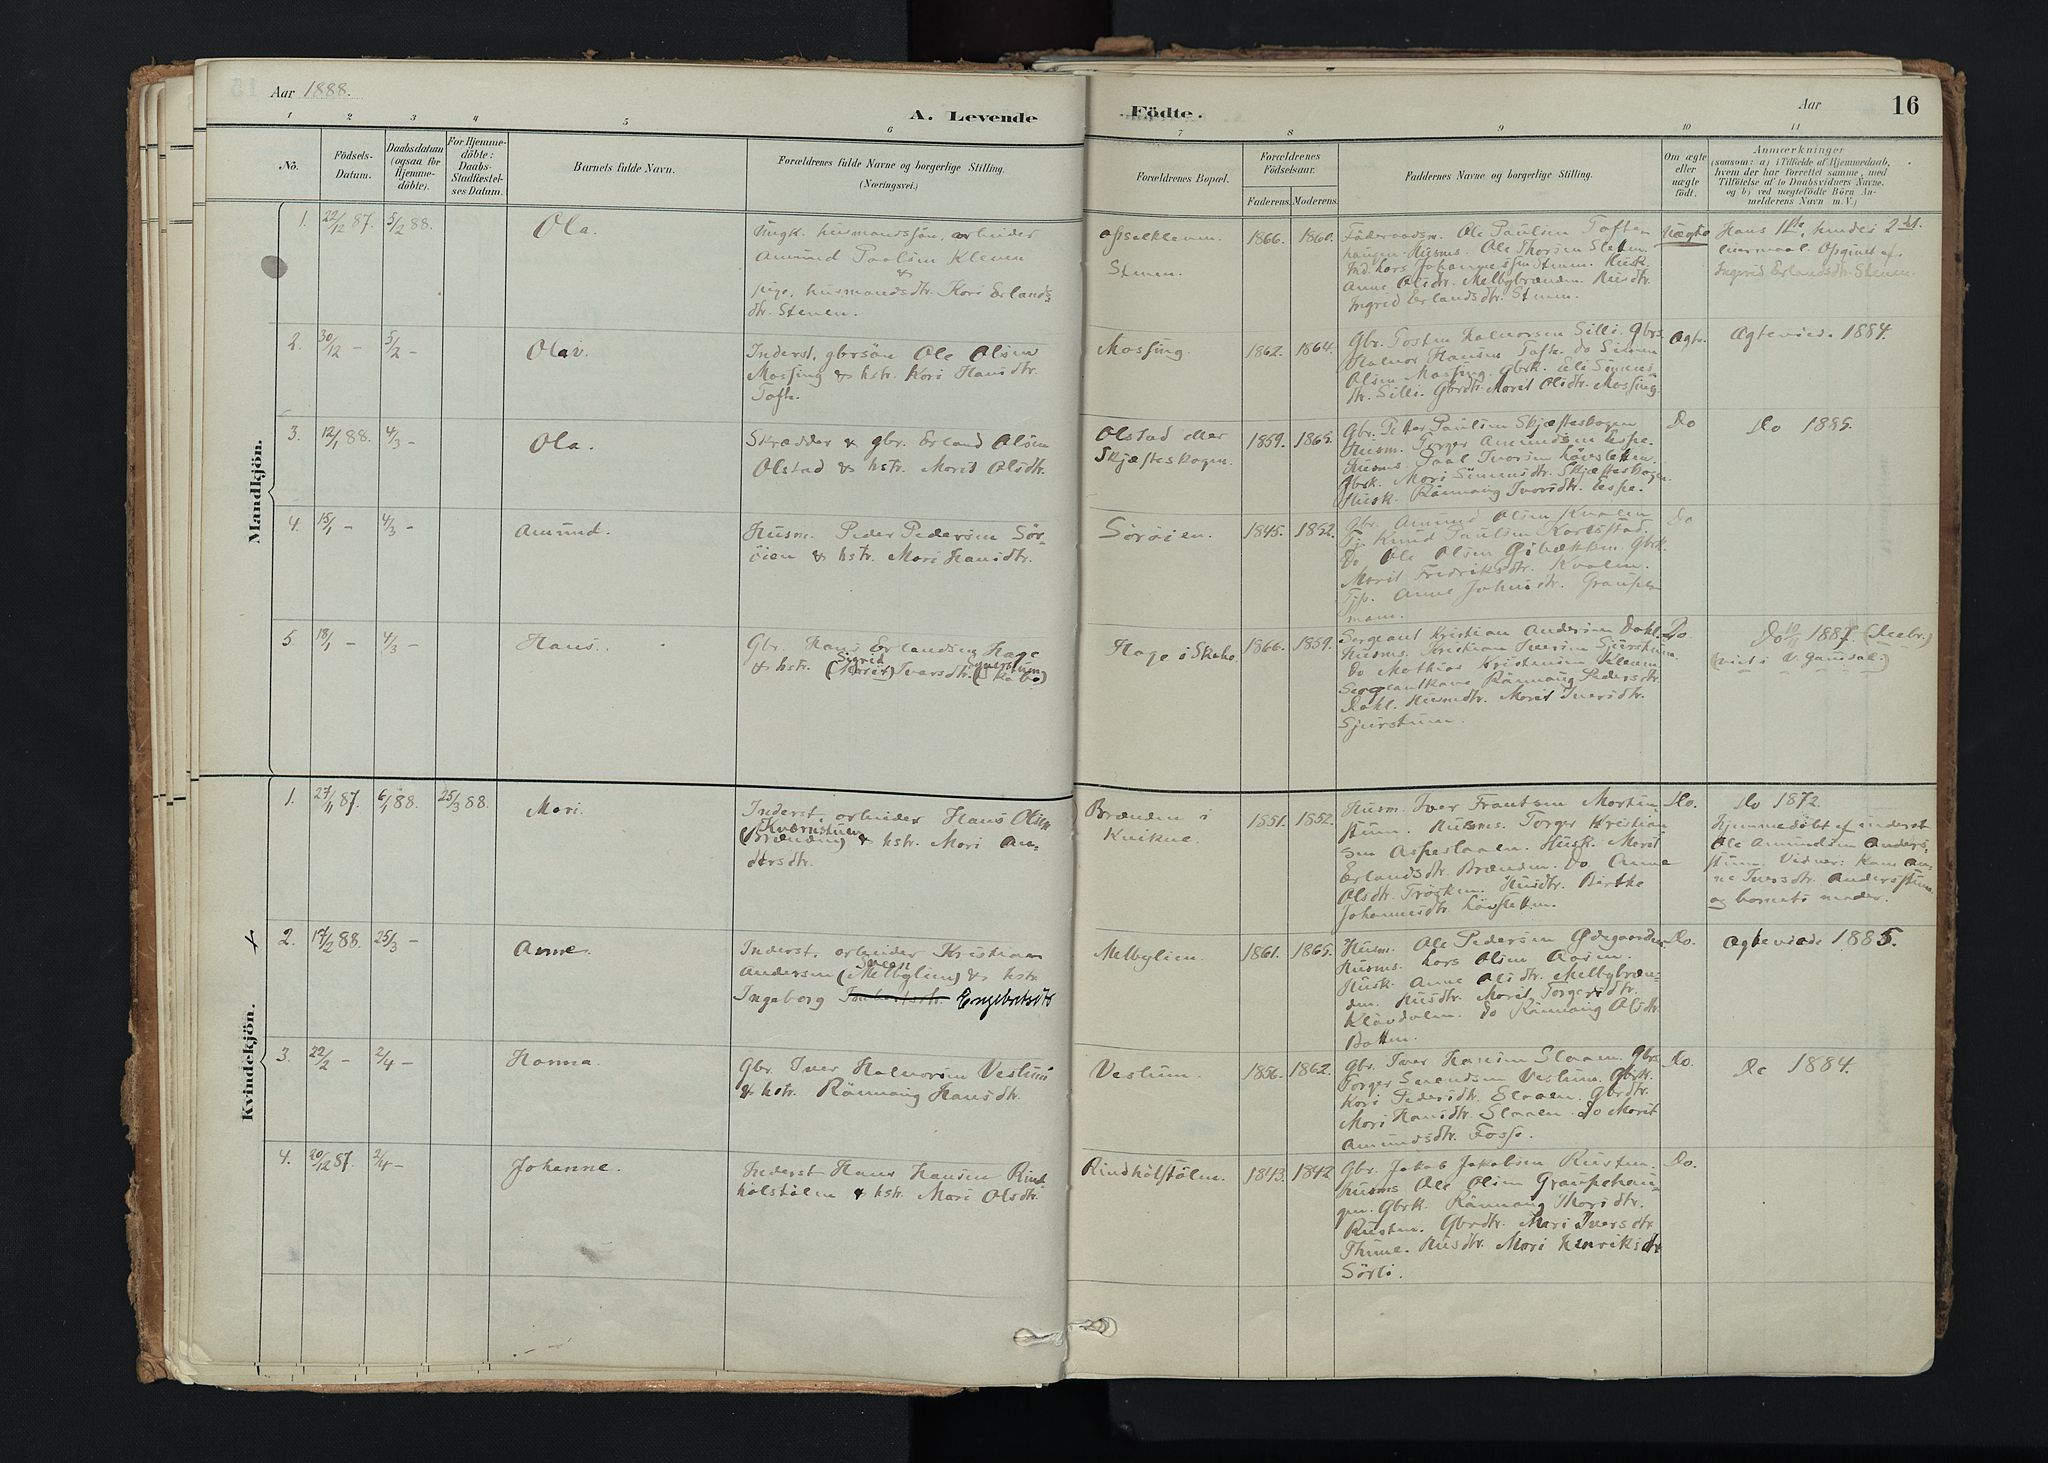 Aar 1888.
A. Levende
Födte.
Aar
16
1 2 3 4 5 6 7 8 9 10 11
No.
Födsels-
Datum.
Daabsdatum
(ogsaa for
Hjemme-
döbte).
For Hjemme-
döbte:
Daabs-
Stadfæstel-
ses Datum.
Barnets fulde Navn.
Forældrenes fulde Navne og borgerlige Stilling.
(Næringsvei.)
Forældrenes Bopæl.
Forældrenes
Födselsaar.
Faderens. Moderens.
Faddernes Navne og borgerlige Stilling.
Om ægte
eller
uægte
födt.
Anmærkninger
(saasom: a) i Tilfælde af Hjemmedaab,
hvem der har forrettet samme, med
Tilföielse af to Daabsvidners Navne,
og b) ved uægtefödte Börn An-
melderens Navn m. V.)
Mandkjön.
1. 22/12 87. 5/2 88. Ola.
Ungk. husmandssøn, arbeider
Amund Paalsen Kleven
&
pige, husmandsdtr. Kari Erlands-
dtr. Stenen.
Stenen.
1866. 1860.
Föderaadsm. Ole Paulsen Toften
haugen. Husms. Ole Thorsen Sletten
Ind. Lars Johannessen Stenen. Husk.
Anne Olsdtr. Melbybrænden. Husdtr.
Ingrid Erlandsdtr. Stenen.
Uægte
Hans 1ste, hendes 2det
leiermaal. Opgivet af
Ingrid Erlandsdtr. Stenen.
2. 30/12 - 5/2 - Olav.
Inderst, gbrsøn Ole Olsen
Mossing & hstr. Kari Hansdtr.
Tofte.
Mossing.
1862. 1864.
Gbr. Tosten Halvorsen Silli. Gbrs.
Halvor Hansen Tofte. do Simen
Olsen Mossing. Gbrk. Eli Simens-
dtr. Silli. Gbrdtr. Marit Olsdtr. Mossing.
Ægte.
Ægteviede 1884.
3. 12/1 88. 4/3 - Ola.
Skrædder & gbr. Erland Olsen
Olstad & hstr. Marit Olsdtr.
Olstad eller
Skjæfteskogen.
1859. 1865.
Gbr. Petter Paulsen Skjæfteskogen
Husm. Torger Amundsen Espe.
Husms. Paal Ivarsen Løvsletten.
Gbrk. Mari Simensdtr. Skjæfteskogen.
Husk. Rønnaug Ivarsdtr. Espe.
Do
Do 1885.
4. 15/1 - 4/3 - Amund.
Husm. Peder Pedersen Sør-
öien & hstr. Mari Hansdtr.
Sørøien.
1845. 1852.
Gbr. Amund Olsen Kvalen
Tj. Knud Paulsen Karlsstad.
Do Ole Olsen Øibækken. Gbrk.
Marit Fredriksdtr. Kvalen.
Tjp. Anne Johnsdtr. Graupe-
moen.
Do
5 18/1 - 4/3 - Hans.
Gbr. Hans Erlandsen Hage
Sigrid
& hstr. (Marit) Ivarsdtr.
Hage i Skabo
1866. 1859.
Sergeant Kristian Andersen Dahl.
Husms. Kristian Iversen Sjurstuen.
Do Mathias Kristensen Kleven
Sergeantkone Rønnaug Pedersdtr.
Dahl. Husmdtr. Marit Iversdtr.
Sjurstuen.
Do.
Do 10/11 1887.
Kvindekjön.
1. 27/11 87. 6/1 88. 25/3 88. Mari.
Inderst, arbeider Hans Olsen
Kværnstuen
(Brænden) & hstr. Mari An-
dersdtr.
Brænden i
Kvikne.
1851. 1852.
Husm. Iver Frantsen Morten
stuen. Husms. Torger Kristian
sen Aspeslaaen. Husk. Marit
Erlandsdtr. Brænden. Do Anne
Olsdtr. Trøsken. Husdtr. Birthe
Johannesdtr. Løvsletten.
Do.
Do 1872.
Hjemmedøbt af inderst
Ole Amundsen Anders-
stuen. Vidner: Kone An-
ne Iversdtr. Andersstuen
og barnets moder.
2. 17/2 88. 25/3 - Anne.
Inderst, arbeider Kristian
Andersen (Melbylien) & hstr.
Ingeborg Engebretsdtr
Melbylien.
1861. 1865.
Husm. Ole Pedersen Ødegaarden
Husms. Lars Olsen Aasen.
Husk. Anne Olsdtr. Melbybræn-
den. Husdtr. Marit Torgersdtr.
Kløvdalen. do Rønnaug Olsdtr.
Batten.
Do.
Ægteviede 1885.
3. 22/2 - 2/4 - Hanna.
Gbr. Iver Halvorsen Vestum
& hstr. Rønnaug Hansdtr.
Vestum.
1856. 1862.
Gbr. Iver Hansen Slaaen. Gbrs.
Torger Svendsen Vestum. Gbrk.
Kari Pedersdtr. Slaaen. Gbrdtr.
Mari Hansdtr. Slaaen. Do Marit
Amundsdtr. Fosse.
Do.
Do 1884.
4. 20/12 87. 2/4 - Johanne.
Inderst Hans Hansen Rind-
hølstølen & hstr. Mari Olsdtr.
Rindhølstølen.
1843. 1842
Gbr. Jakob Jakobsen Rusten.
Husms Ole Olsen Graupehau-
gen. Gbrk. Rønnaug Thorsdtr.
Rusten. Gbrdtr. Mari Iversdtr
Thune. Husdtr. Mari Henriksdtr
Sørli.
Do.